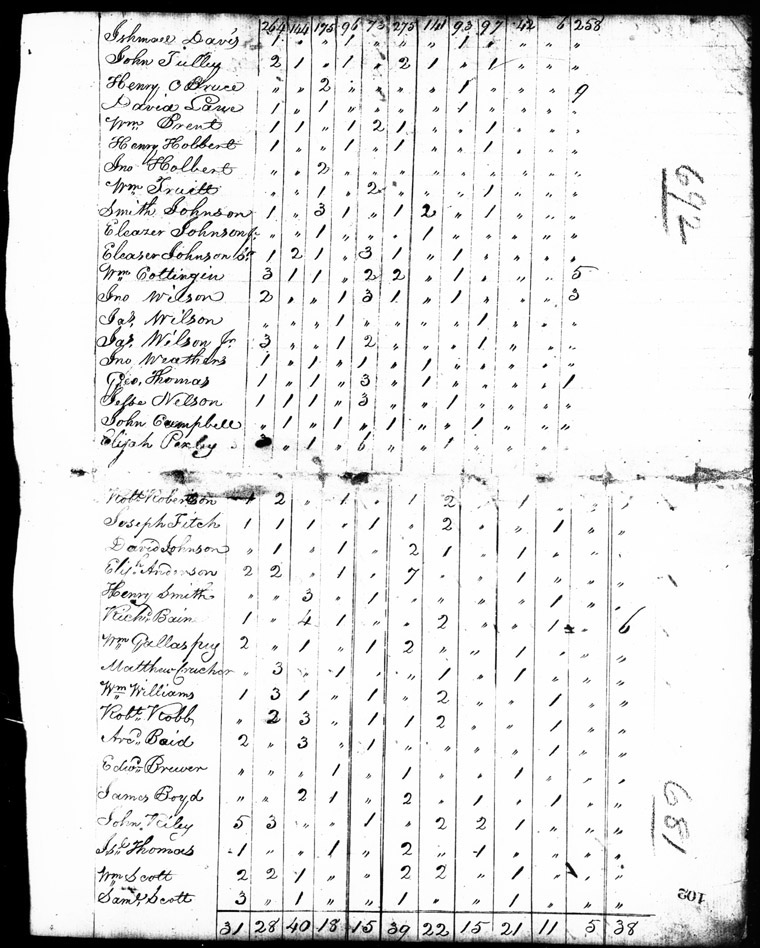 264 144 175 96 73 275 141 93 97 42 6 258
Ishmael Davis 1 " " 1 " " " 1 " " " "
John Tulley 2 1 " 1 " 2 1 " 1 " " "
Henry O Bruce " " 2 " " " " 1 " " " 9
David Lawe 1 " 1 " " " " 1 " " " "
Wm. Brent 1 1 " 1 2 1 " " 1 " " "
Henry Holbert 1 " " 1 " 1 " " 1 " " "
Jno Holbert " " 2 " " " " " " " " "
Wm Truitt " " 1 " 2 " " " 1 " " "
Smith Johnson 1 " 3 1 " 1 2 " 1 " " "
Eleazer Johnson Jr " " 1 " " " 1 " " " " "
Eleaser Johnson Sr 1 2 1 " 3 1 " 1 " " " "
Wm Cottingin 3 1 1 " 2 2 " 1 " " " 5
Jno Wilson 2 " " 1 3 1 " 1 " " " 3
Jas. Wilson " " " 1 " " " " 1 " " "
Jas. Wilson Jr 3 " " 1 2 " " " 1 " " "
Jno Weathers 1 " 1 " 1 " 1 " " " " "
Geo. Thomas 1 " 1 " 3 " 1 " " " " 1
Jesse Nelson 1 1 1 " 3 " " 1 " " " "
John Campbell " 1 " 1 " 1 " " 1 " " "
Elijah 3 " 1 " 6 " " 1 " " " "
692
Robt. Robertson 1 2 " 1 " 1 2 " 1 " "
Joseph Fitch 1 1 1 " 1 " 2 " " 1 " "
David Johnson " 1 " 1 " 2 1 " 1 " " "
Elijh. Anderson 2 2 " 1 " 7 " " 1 " " "
Henry Smith " " 3 " 1 " " " " 1 " "
Richd. Bain 1 " 4 1 " " 2 " " 1 6
Wm Gallaspey 2 " 1 " 1 2 " " 1 " " "
Matthew " 3 " 1 " " 1 " 1 " " "
Wm Williams 1 3 1 " 1 " 2 " " 1 " "
Robt. Robb " 2 3 " 1 1 2 " " 1 " "
Arcd. Baid 2 " 3 " 1 " " " " 1 " "
Edwd. Brewer " " " 1 " 1 " " 1 " " "
James Boyd " " 2 1 " 2 " 1 " 1 " "
John Kiley 5 3 " " 1 " 2 2 1 " " "
Thomas 1 " " 1 " 2 " 1 " " " "
Wm Scott 2 2 1 " " 2 2 " 1 " "
Saml. Scott 3 " 1 " " 1 " " 1 " " "
31 28 40 18 15 39 22 15 21 11 5 38
681
102